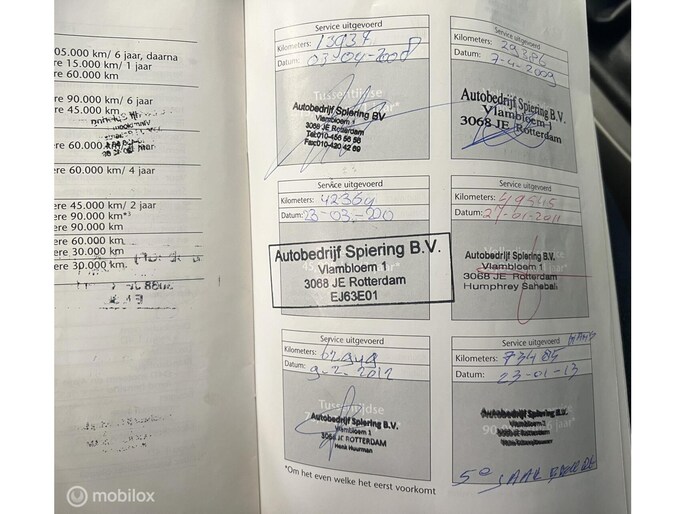 05.000 km/ 6 jaar, daarna
ere 15.000 km/ 1 jaar
ere 60.000 km
ere 90.000 km/ 6 jaar
ere 45.000 km
ere 60.000
ere 60.000 km/ 4 jaar
ere 45.000 km/ 2 jaar
ere 90.000 km*³
ere 90.000 km
ere 60.000 km
ere 30.000 km
ere 30.000 km
Service uitgevoerd
Kilometers: 13937
Datum: 03-04-2008
Autobedrijf Spiering BV
Vlambloem 1
3068 JE Rotterdam
Tel:010-456 56 56
Fax:010-420 42 69
Service uitgevoerd
Kilometers: 29386
Datum: 7-4-2009
Autobedrijf Spiering B.V.
Vlambloem 1
3068 JE Rotterdam
Service uitgevoerd
Kilometers: 42364
Datum: 23-03-
Autobedrijf Spiering B.V.
Vlambloem 1
3068 JE Rotterdam
EJ63E01
Service uitgevoerd
Kilometers: 49545
Datum: 27-01-2011
Autobedrijf Spiering B.V.
Vlambloem 1
3068 JE Rotterdam
Humphrey Sahebali
Service uitgevoerd
Kilometers: 62949
Datum: 9-2-2012
Tussentijdse
Autobedrijf Spiering B.V.
Vlambloem 1
3068 JE ROTTERDAM
Henk Huurman
Service uitgevoerd
Kilometers: 73485
Datum: 23-01-13
Autobedrijf Spiering B.V.
Vlambloem 1
3068 JE Rotterdam
*Om het even welke het eerst voorkomt
mobilox